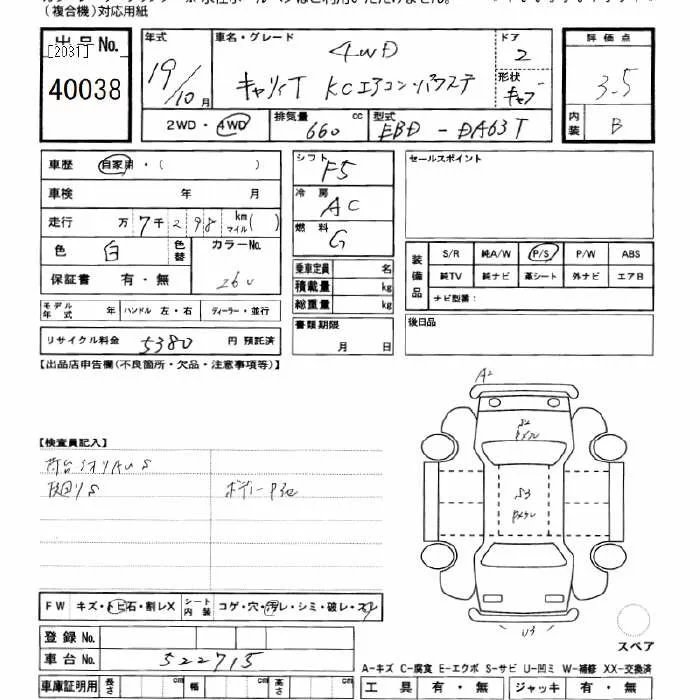 (複合機)対応用紙
出品No.
[2031]
40038
年式
19/10月
車名・グレード
4WD
キャリィT KCエアコン・パワステ
ドア
2
形状
キャブ
評価点
3.5
内装
B
2WD・4WD
排気量 660 cc
型式 EBD-DA63T
車歴 自家用・( )
車検 年 月
走行 万 7千 298 km マイル( )
色 白 色替
カラーNo. 26U
保証書 有・無
モデル年式 年 ハンドル 左・右 ディーラー・並行
リサイクル料金 5380 円 預託済
シフト F5
冷房 AC
燃料 G
乗車定員 名
積載量 kg
総重量 kg
書類期限
月 日
セールスポイント
装備品
S/R 純A/W P/S P/W ABS
純TV 純ナビ 革シート 外ナビ エアB
ナビ型番:
後日品
【出品店申告欄(不良箇所・欠品・注意事項等)】
【検査員記入】
A2
S3
U3
FW キズ・トビ石・割レX シート内装 コゲ・穴・汚レ・シミ・破レ・スレ
登録No.
車台No. 522715
車庫証明用 長さ cm 幅 cm 高さ cm
スペア
A-キズ C-腐食 E-エクボ S-サビ U-凹ミ W-補修 XX-交換済
工具 有・無 ジャッキ 有・無